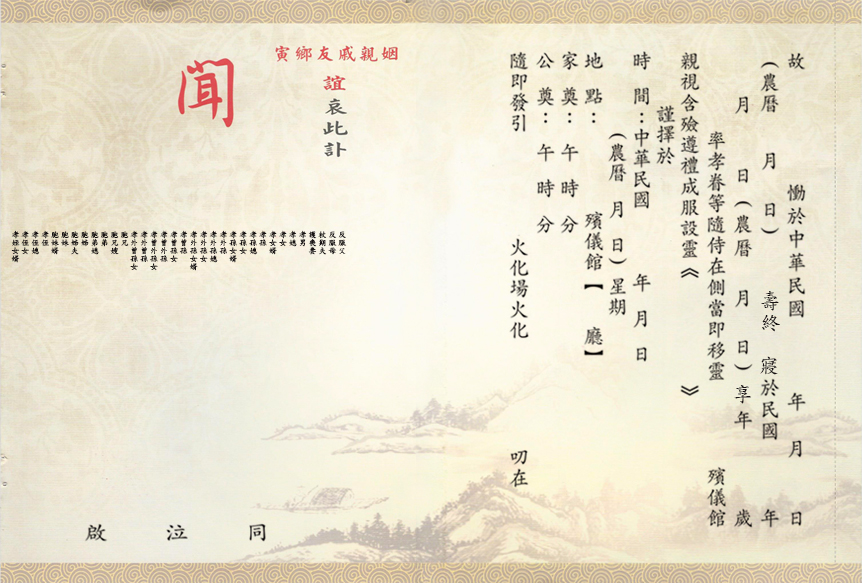 故 慟於中華民國 年 月 日
(農曆 月 日) 壽終 寢於民國 年
月 日(農曆 月 日)享年 歲
率孝眷等隨侍在側當即移靈 殯儀館
親視含殮遵禮成服設靈《 》
謹擇於
時 間:中華民國 年 月 日
(農曆 月 日)星期
地 點: 殯儀館【 廳】
家 奠: 午 時 分
公 奠: 午 時 分
隨即發引 火化場火化 叨在
姻親戚友鄉寅
誼哀此訃
聞
反服父
反服母
杖期夫
護喪妻
孝男
孝媳
孝女
孝女婿
孝孫
孝孫媳
孝孫女
孝孫女婿
孝外孫
孝外孫媳
孝外孫女
孝外孫女婿
孝曾孫
孝曾孫女
孝曾外孫
孝曾外孫女
孝外曾孫
孝外曾孫女
胞兄
胞兄嫂
胞弟
胞弟媳
胞姊
胞姊夫
胞妹
胞妹婿
孝姪
孝姪媳
孝姪女
孝姪女婿
同 泣 啟